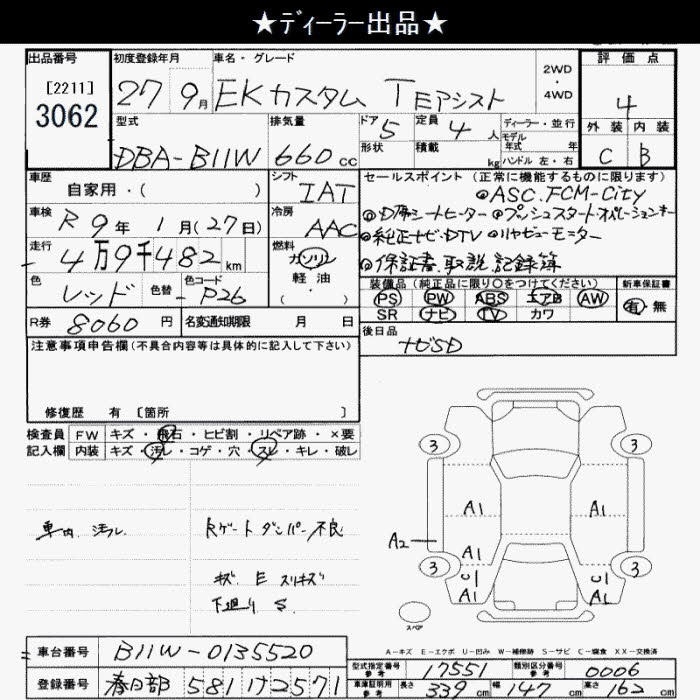 ★ディーラー出品★
出品番号
[2211]
3062
初度登録年月
27 9月
車名・グレード
EKカスタム TEアシスト
2WD
・
4WD
評価点
4
外装 内装
C B
型式
DBA-B11W
排気量
660cc
ドア 5
形状
定員 4人
積載 kg
ディーラー・並行
モデル年式 年
ハンドル 左・右
車歴 自家用・( )
シフト IAT
車検 R9年1月(27日)
冷房 AAC
走行 4万9千482km
燃料 ガソリン
軽油
( )
色 レッド 色替 - 色コード P26
R券 8060円 名変通知期限 月 日
セールスポイント(正常に機能するものに限ります)
◎ASC.FCM-City
◎D席シートヒーター ◎プッシュスタートオペレーションキー
◎純正ナビ・DTV ◎リヤビューモニター
◎保証書.取説.記録簿
装備品(純正品に限り○をつけてください)
PS PW ABS エアB AW
SR ナビ TV カワ
新車保証書
有・無
後日品
ナビSD
注意事項申告欄(不具合内容等は具体的に記入して下さい)
修復歴 有〔箇所 〕
検査員記入欄
FW キズ・飛石・ヒビ割・リペア跡・×要
内装 キズ・汚レ・コゲ・穴・スレ・キレ・破レ
車内 汚レ
Rゲートダンパー不良
キズ E スリキズ
下廻り S
3 3
A1 A1
A2
A1
3 3
U1 U1
A1 A1
スペア
A-キズ E-エクボ U-凹み W-補修跡 S-サビ C-腐食 XX-交換済
車台番号 B11W-0135520
登録番号 春日部 581 け2571
型式指定番号 参考 17551 類別区分番号 参考 0006
車庫証明用 参考 長さ 339cm 幅 147cm 高さ 162cm